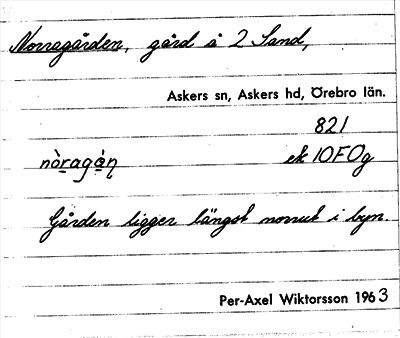 Norragården, gård å 2 Sand,
Askers sn, Askers hd, Örebro län.
821
nòragàn̥ ek 10F0g
Gården ligger längst norrut i byn.
Per-Axel Wiktorsson 1963